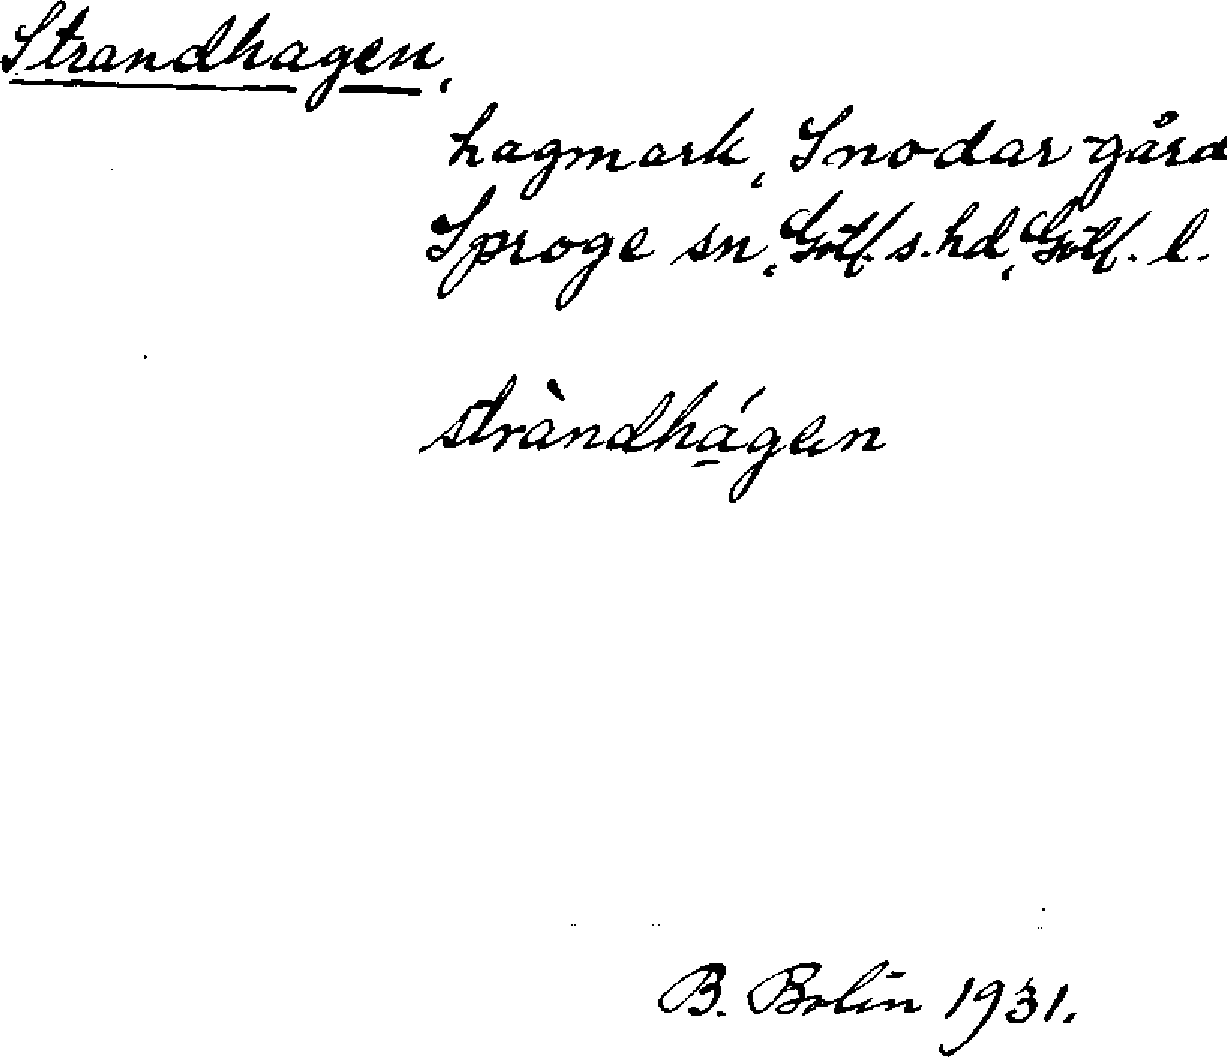 Strandhagen,
hagmark, Snodar gård
Sproge sn, Gotl. s. hd, Gotl. l.
stràndhá̱gen
B. Bolin 1931.